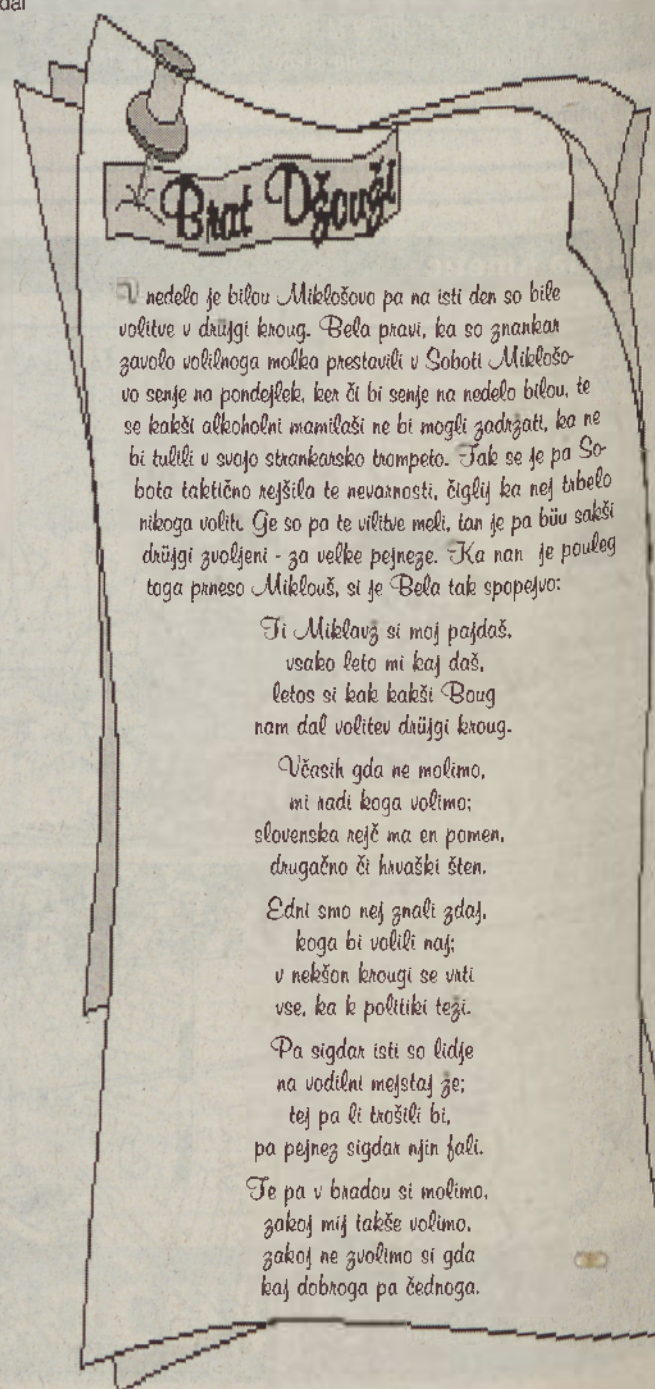 dal
Brat Džouži
V nedelo je bilou Miklošovo pa na isti den so bile
volitve v drüjgi kroug. Bela pravi, ka so znankar
zavolo volilnoga molka prestavili v Soboti Miklošo-
vo senje na pondejlek, ker či bi senje na nedelo bilou, te
se kakši alkoholni mamilaši ne bi mogli zadržati, ka ne
bi tulili v svojo strankarsko trompeto. Tak se je pa So-
bota taktično rejšila te nevarnosti, čiglij ka nej trbelo
nikoga voliti. Ge so pa te vilitve meli, tan je pa büu sakši
drüjgi zvoljeni - za velke pejneze. Ka nan je pouleg
toga prneso Miklouš, si je Bela tak spopejvo:
Ti Miklavž si moj pajdaš,
vsako leto mi kaj daš,
letos si kak kakši Boug
nam dal volitev drüjgi kroug.
Včasih gda ne molimo,
mi radi koga volimo;
slovenska rejč ma en pomen,
drugačno či hrvaški šten.
Edni smo nej znali zdaj,
koga bi volili naj;
v nekšon krougi se vrti
vse, ka k politiki teži.
Pa sigdar isti so lidje
na vodilni mejstaj že;
tej pa li trošili bi,
pa pejnez sigdar njin fali.
Te pa v bradou si molimo,
zakoj mij takše volimo,
zakoj ne zvolimo si gda
kaj dobroga pa čednoga.